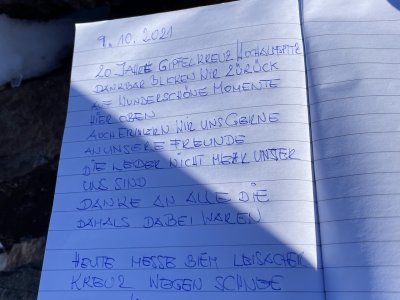 9. 10. 2021
20 JAHRE GIPFELKREUZ HOCHALMSPITZ
DANKBAR BLICKEN WIR ZURÜCK
AUF WUNDERSCHÖNE MOMENTE
HIER OBEN
AUCH ERINNERN WIR UNS GERNE
AN UNSERE FREUNDE
DIE LEIDER NICHT MEHR UNTER
UNS SIND
DANKE AN ALLE DIE
DAMALS DABEI WAREN
HEUTE MESSE BEIM LEISACHER
KREUZ WEGEN SCHNEE